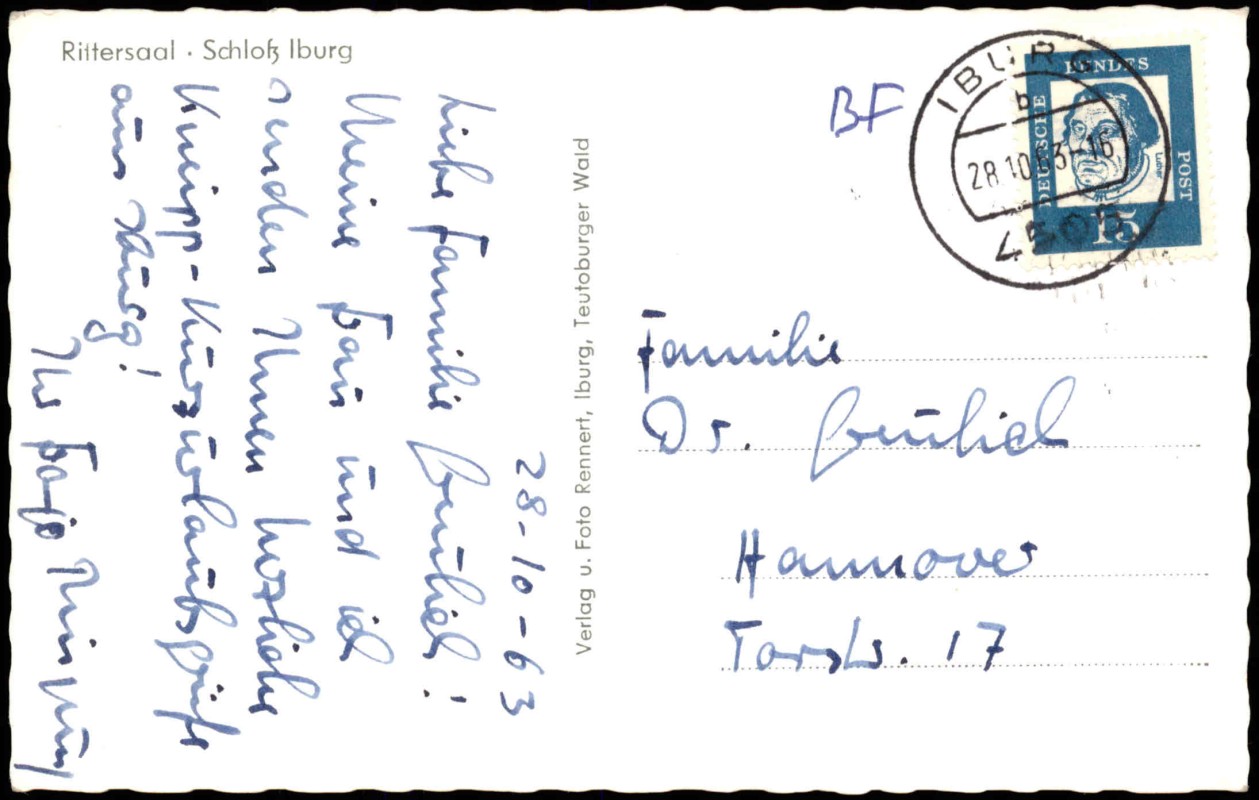 Rittersaal · Schloß Iburg
28-10-63
Liebe Familie Greulich!
Meine Frau und ich
senden Ihnen herzliche
Kneipp-Kururlaubsgrüße
aus Iburg!
Ihr
Verlag u. Foto Rennert, Iburg, Teutoburger Wald
BF
IBURG
b
28.10.63-16
4505
DEUTSCHE BUNDES POST
Luther
15
Familie
Dr. Greulich
Hannover
Torstr. 17